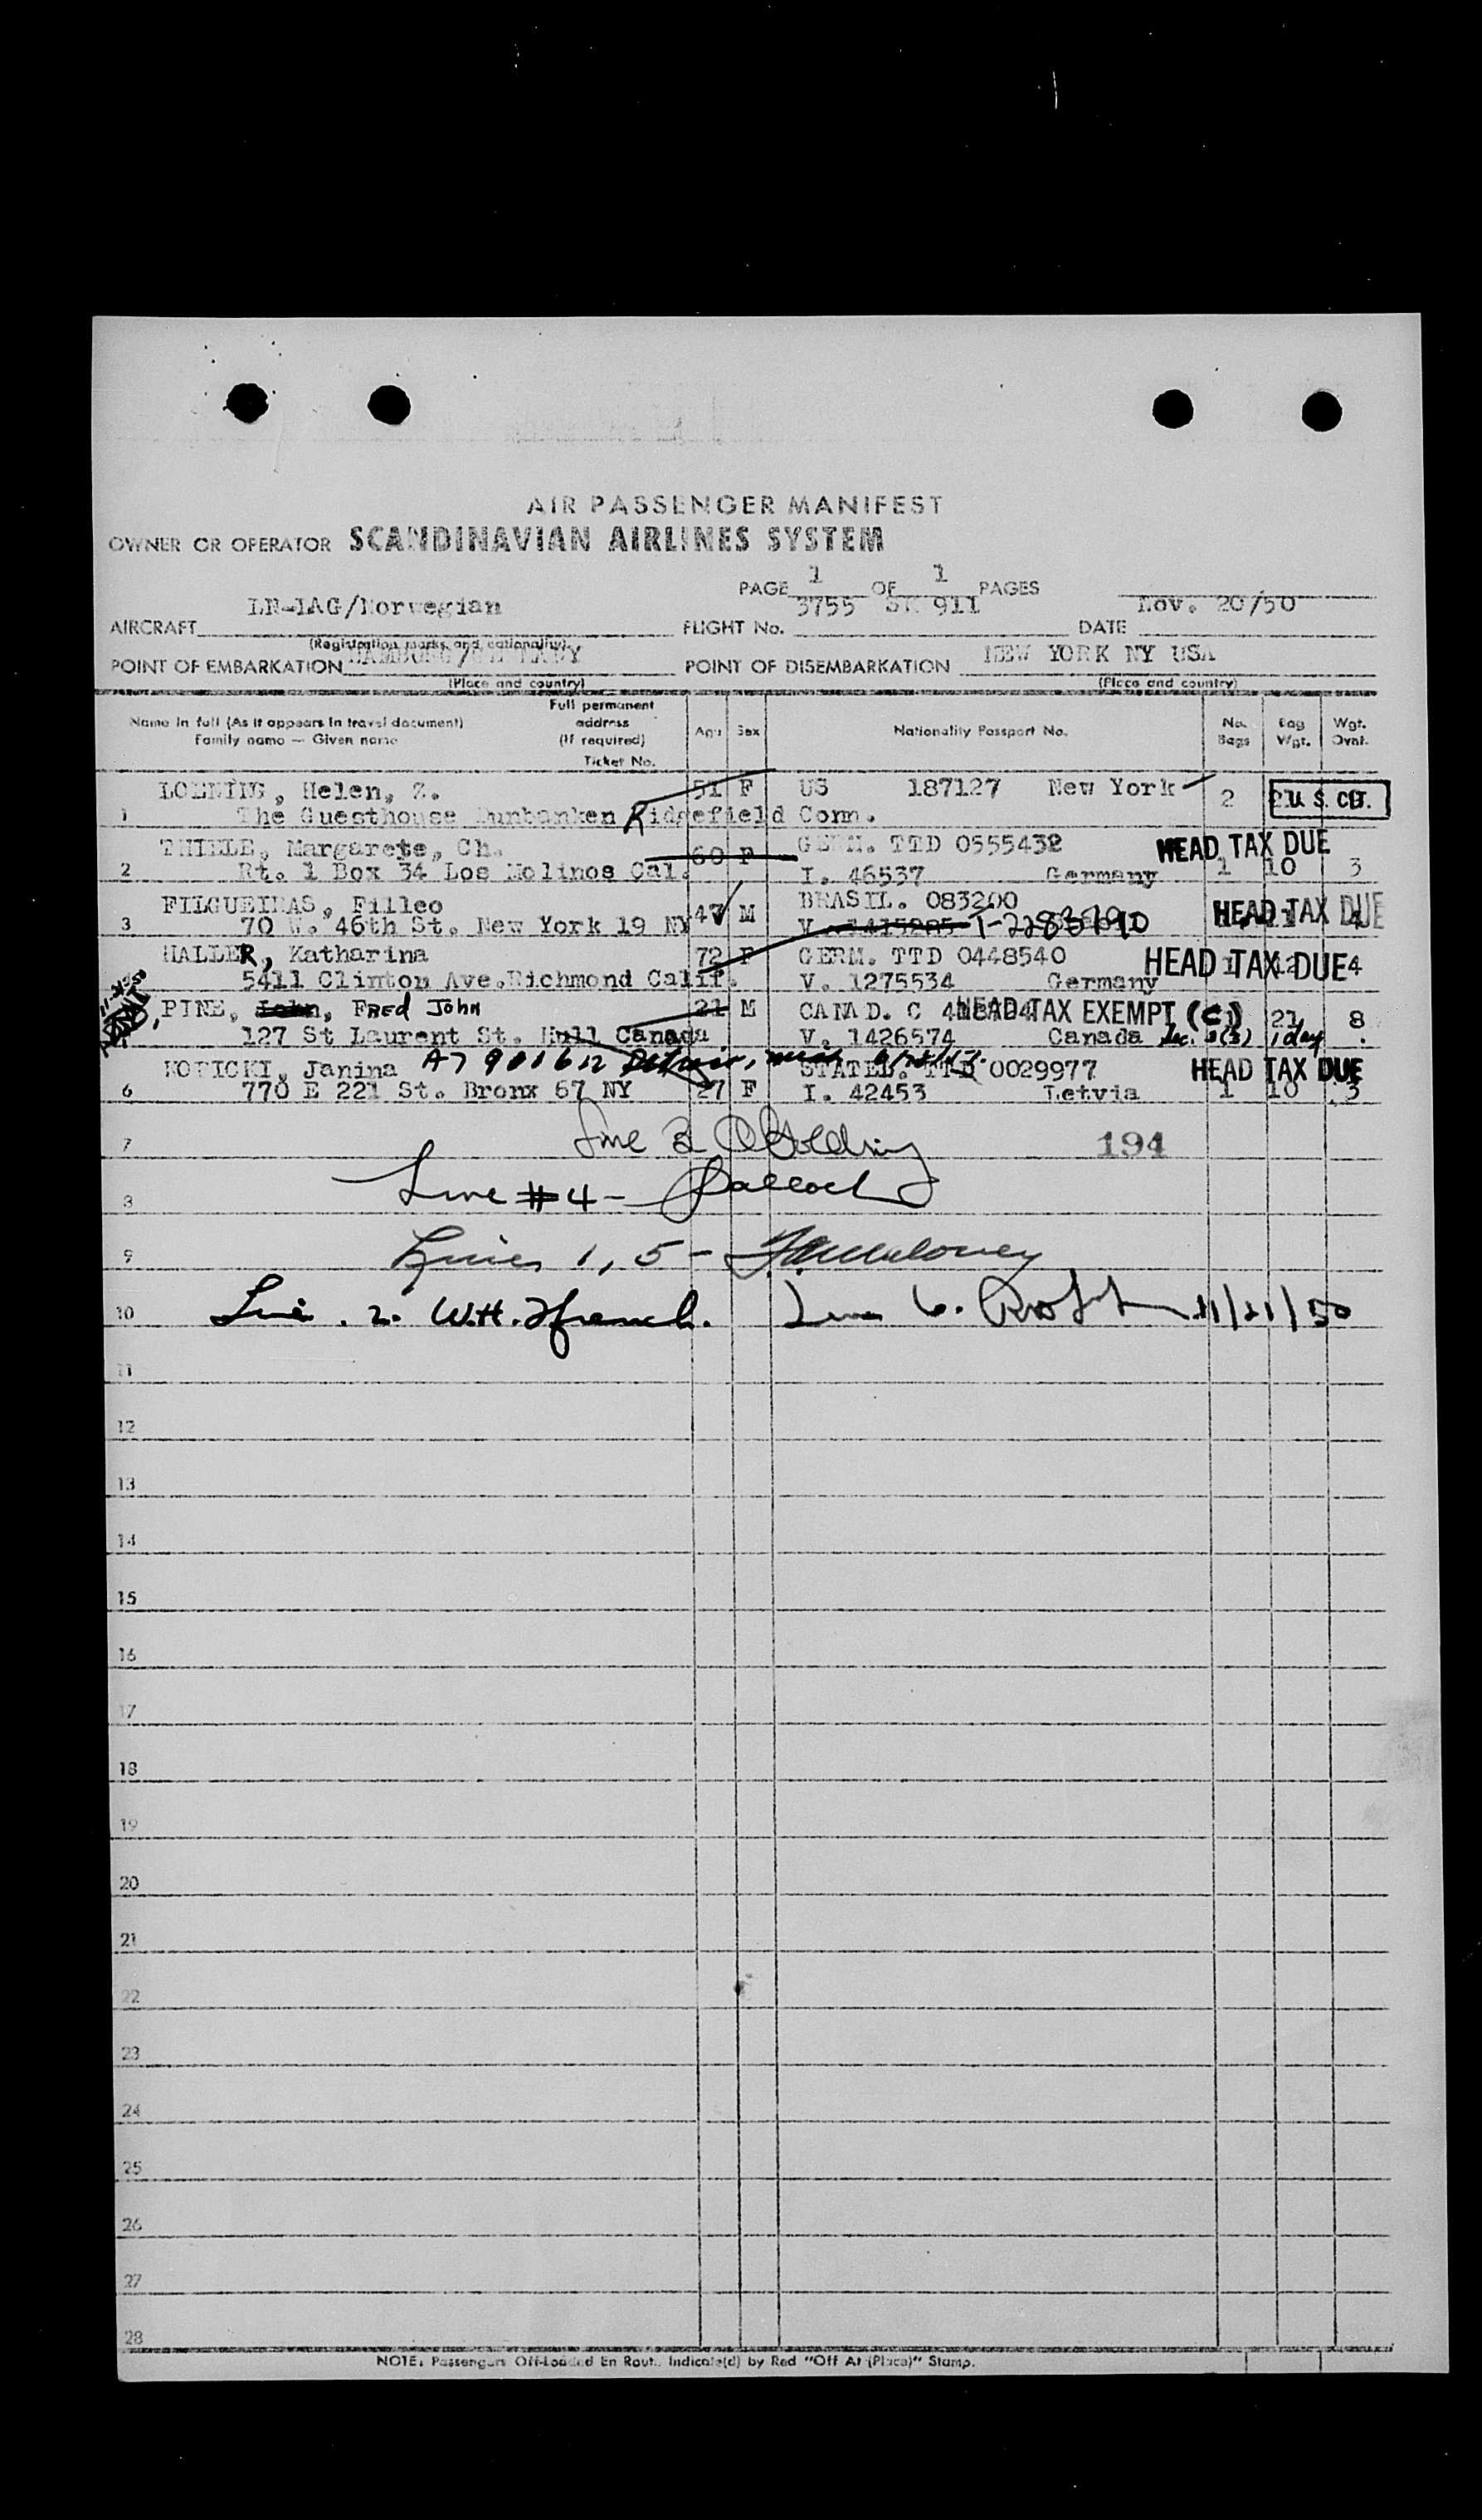 AIR PASSENGER MANIFEST
OWNER OR OPERATOR SCANDINAVIAN AIRLINES SYSTEM
PAGE 1 OF 1 PAGES
AIRCRAFT LN-IAG/Norwegian FLIGHT No. 3755 SK 911 DATE Nov. 20/50
(Registration marks and nationality)
POINT OF EMBARKATION HAMBURG/GERMANY POINT OF DISEMBARKATION NEW YORK NY USA
(Place and country) (Place and country)
Name in full (As it appears in travel document) Family name — Given name Full permanent address (If required) Ticket No. Age Sex Nationality Passport No. No. Bags Bag Wgt. Wgt. Ovnt.
LOENING, Helen, Z. 51 F US 187127 New York 2 U. S. CIT.
1 The Guesthouse Bunbanken Ridgefield Conn.
THIELE, Margarete, Ch. 60 F GERM. TTD 0555432 HEAD TAX DUE
2 Rt. 1 Box 34 Los Molinos Cal. I. 46537 Germany 1 10 3
FILGUEIRAS, Filleo 47 M BRASIL. 083200 HEAD TAX DUE
3 70 W. 46th St. New York 19 NY V. 1415285 4
HALLER, Katharina 72 F GERM. TTD 0448540 HEAD TAX DUE 4
5411 Clinton Ave. Richmond Calif. V. 1275534 Germany
PINE, John, FRED John 21 M CANAD. C HEAD TAX EXEMPT (C) 21 8
127 St Laurent St. Hull Canada V. 1426574 Canada Sec. 3(3) 1 day
KORICKI, Janina A7 901612 Detroit, Mich STATEL. TTD 0029977 HEAD TAX DUE
6 770 E 221 St. Bronx 67 NY 27 F I. 42453 Letvia 1 10 3
7 Line 3 Golding 194
8 Line #4 -
9 Lines 1, 5 -
10 Line 2. W.H. French. Line 6. 11/21/50
11
12
13
14
15
16
17
18
19
20
21
22
23
24
25
26
27
28
NOTE: Passengers Off-Loaded En Route Indicate(d) by Red "Off At (Place)" Stamp.